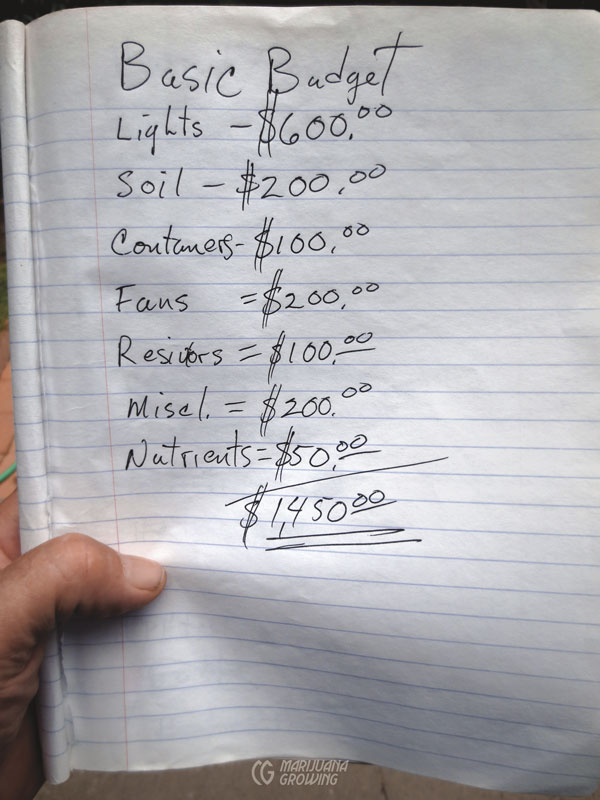 Basic Budget
Lights - $600.00
Soil - $200.00
Contaners- $100.00
Fans = $200.00
= $100.00
Miscl. = $200.00
Nutrients = $50.00
$1,450.00
MARIJUANA
GROWING